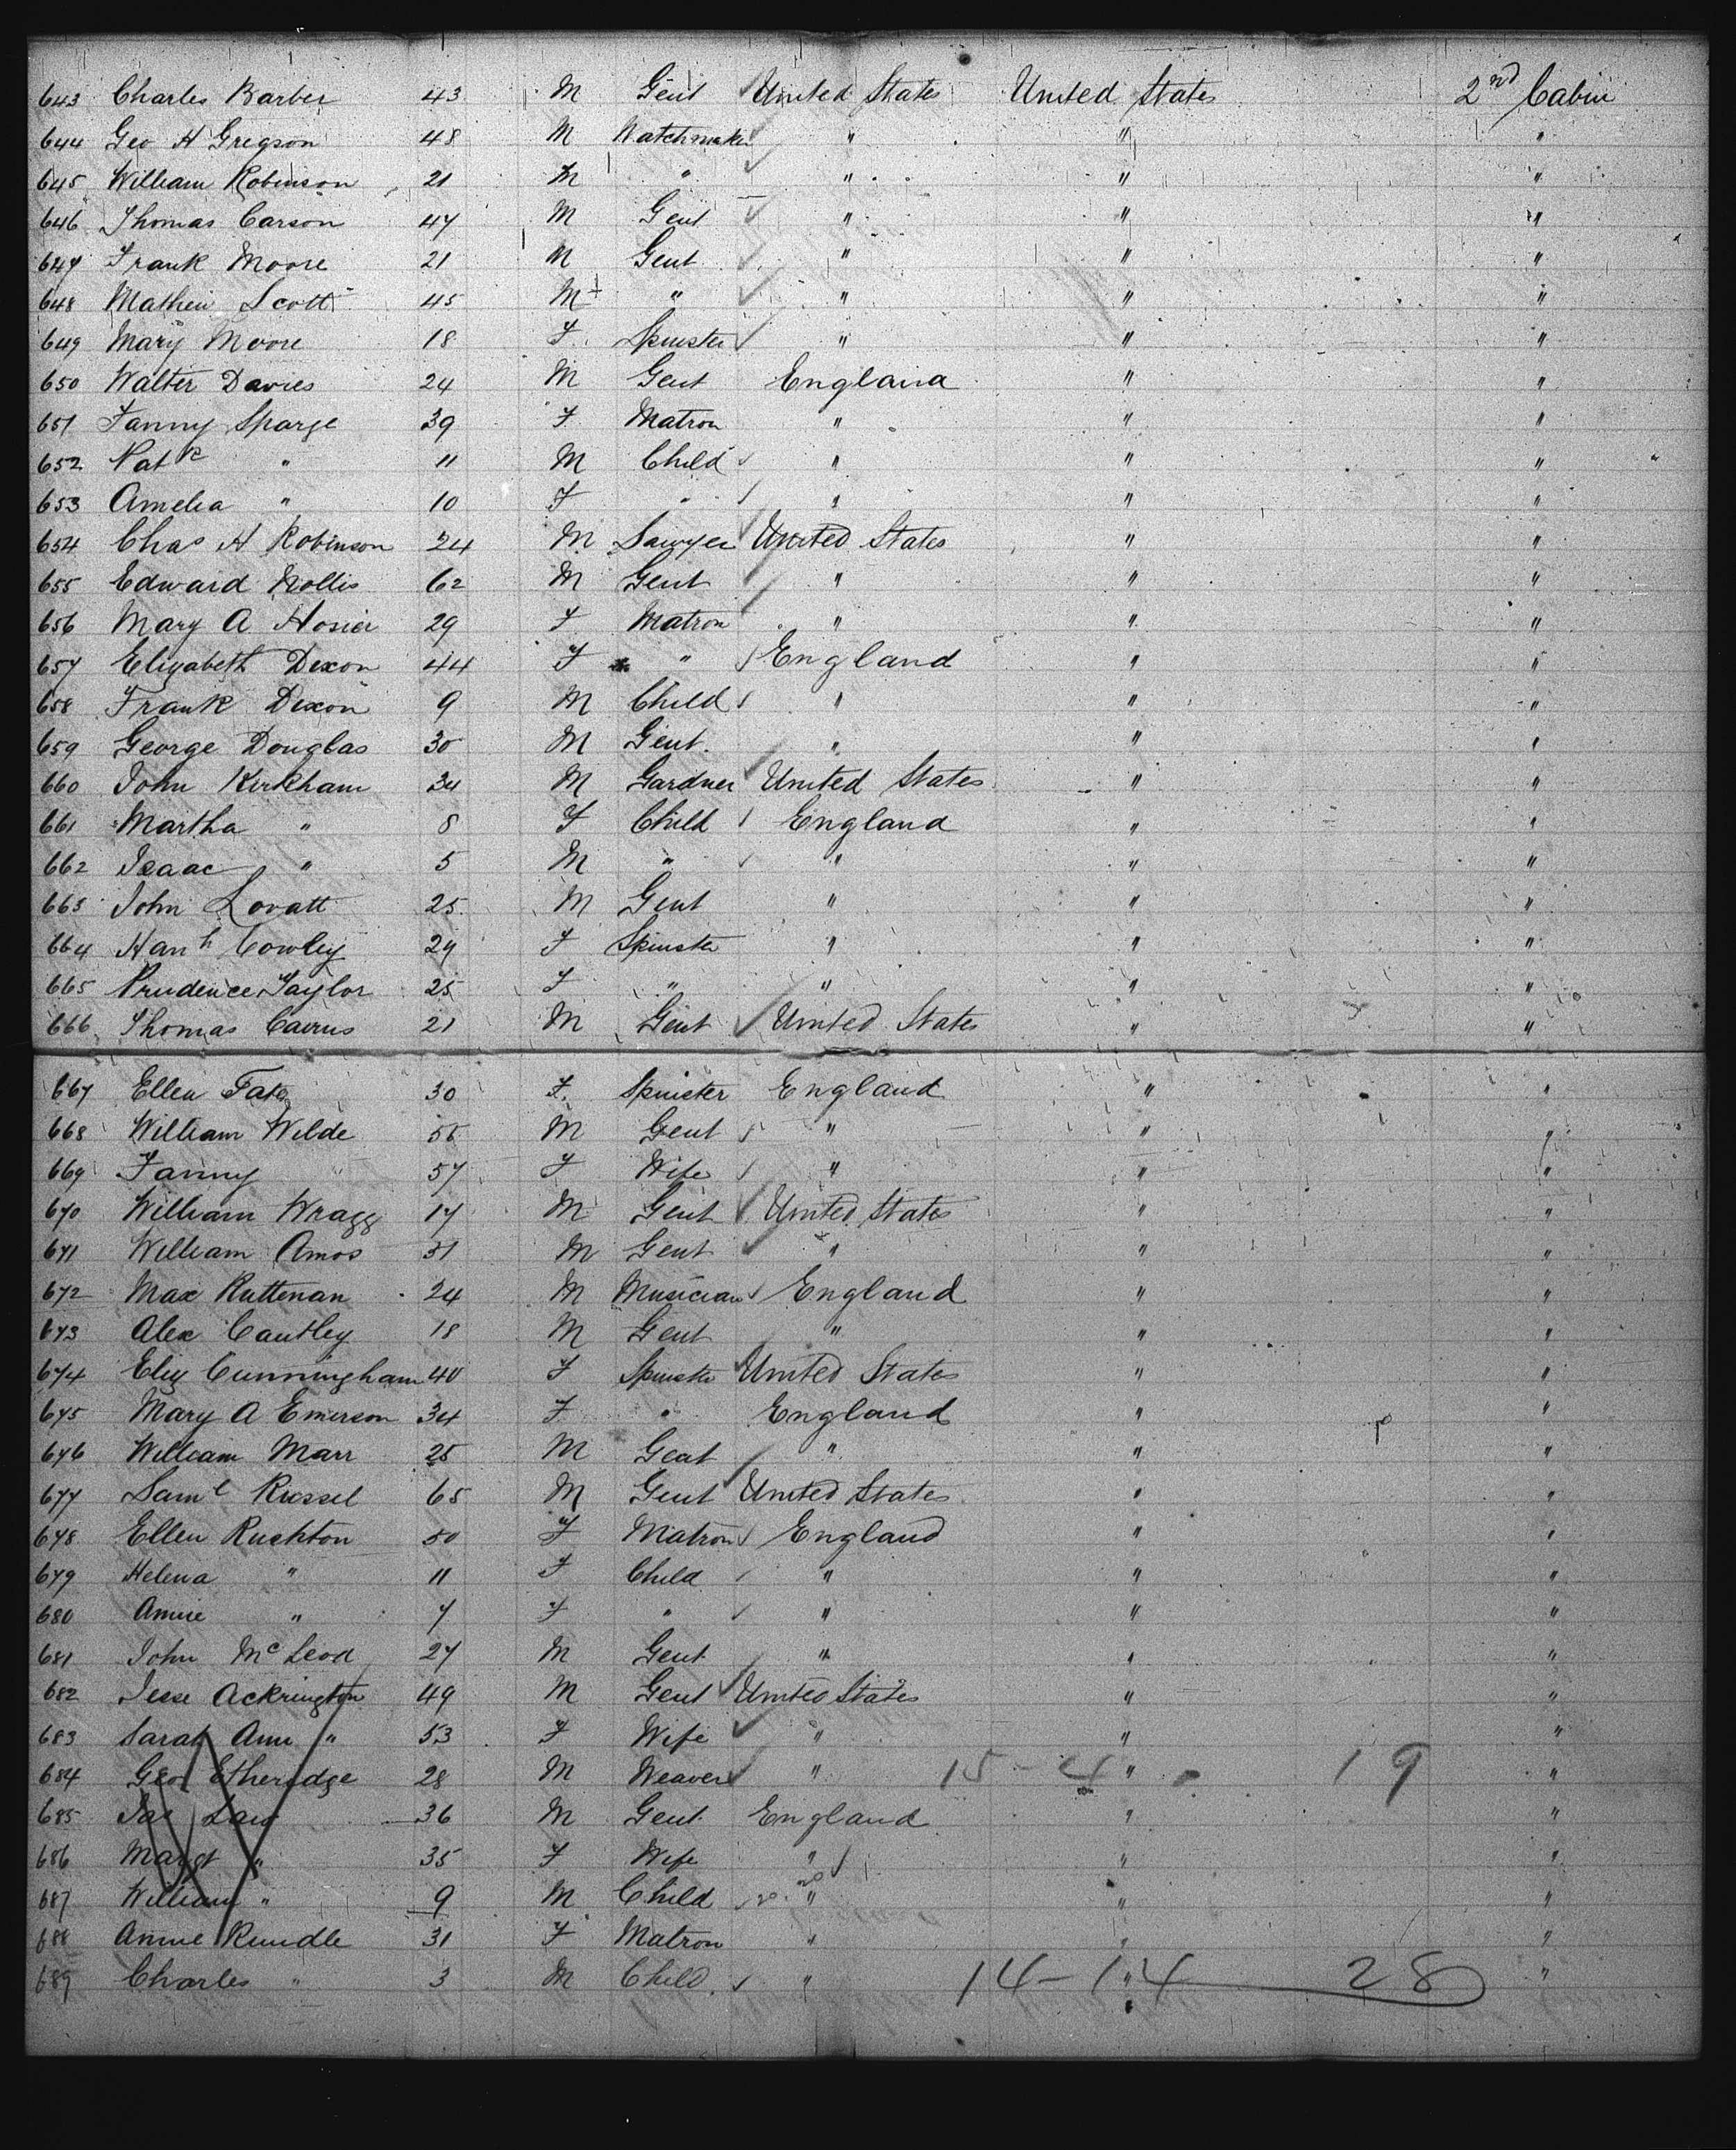 643 Charles Barber 43 M Gent United States United States 2nd Cabin
644 Geo H Gregson 48 M Watchmaker " " "
645 William Robinson 21 M " " " "
646 Thomas Carson 47 M Gent " " "
647 Frank Moore 21 M Gent " " "
648 Mathew Scott 45 M " " " "
649 Mary Moore 18 F Spinster " " "
650 Walter Davies 24 M Gent England " "
651 Fanny Sparge 39 F Matron " " "
652 Patk " 11 M Child " " "
653 Amelia " 10 F " " " "
654 Chas H Robinson 24 M Sawyer United States " "
655 Edward Hollis 62 M Gent " " "
656 Mary A Hosier 29 F Matron " " "
657 Elizabeth Dixon 44 F " England " "
658 Frank Dixon 9 M Child " " "
659 George Douglas 30 M Gent. " " "
660 John Kirkham 34 M Gardner United States " "
661 Martha " 8 F Child England " "
662 Isaac " 5 M " " " "
663 John Lovatt 25 M Gent " " "
664 Hanh Cowley 29 F Spinster " " "
665 Prudence Taylor 25 F " " " "
666 Thomas Cairns 21 M Gent United States " "
667 Ellen Tate 30 F. Spinister England " "
668 William Wilde 55 M Gent " " "
669 Fanny " 57 F Wife " " "
670 William Wragg 17 M Gent United States " "
671 William Amos 31 M Gent " " "
672 Max Ruttenan 24 M Musician England " "
673 Alex Cautley 18 M Gent " " "
674 Eliz Cunningham 40 F Spinster United States " "
675 Mary A Emerson 34 F " England " "
676 William Marr 25 M Gent " " "
677 Saml Russel 65 M Gent United States " "
678 Ellen Rushton 50 F Matron England " "
679 Helena " 11 F Child " " "
680 Annie " 7 F " " " "
681 John McLeod 27 M Gent " " "
682 Jesse Ackrington 49 M Gent United States " "
683 Sarah Ann " 53 F Wife " " "
684 Geo Etheridge 28 M Weaver " 15 - 4 " 19 "
685 Jas Law 36 M Gent England " "
686 Margt " 35 F Wife " " "
687 William " 9 M Child " " "
688 Annie Rundle 31 F Matron " " "
689 Charles " 3 M Child " 14 - 14 " 28 "